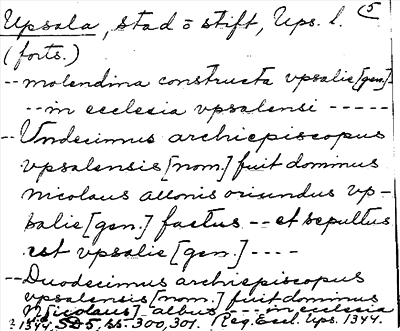 Upsala, stad o stift, Ups. l. 5
(forts.)
-- molendina constructa vpsalie [gen.]
-- in ecclesia vpsalensi -----
-- Vndecimus archiepiscopus
vpsalensis [nom.] fuit dominus
nicolaus allonis oriundus vp-
salie [gen.] factus -- et sepultus
est vpsalie [gen.] ----
-- Duodecimus archiepiscopus
vpsalensis [nom.] fuit dominus
N[icolaus] albus -- -- in ecclesia
? 1344. SD 5, ss. 300, 301. Reg. Eccl. Ups. 1344.